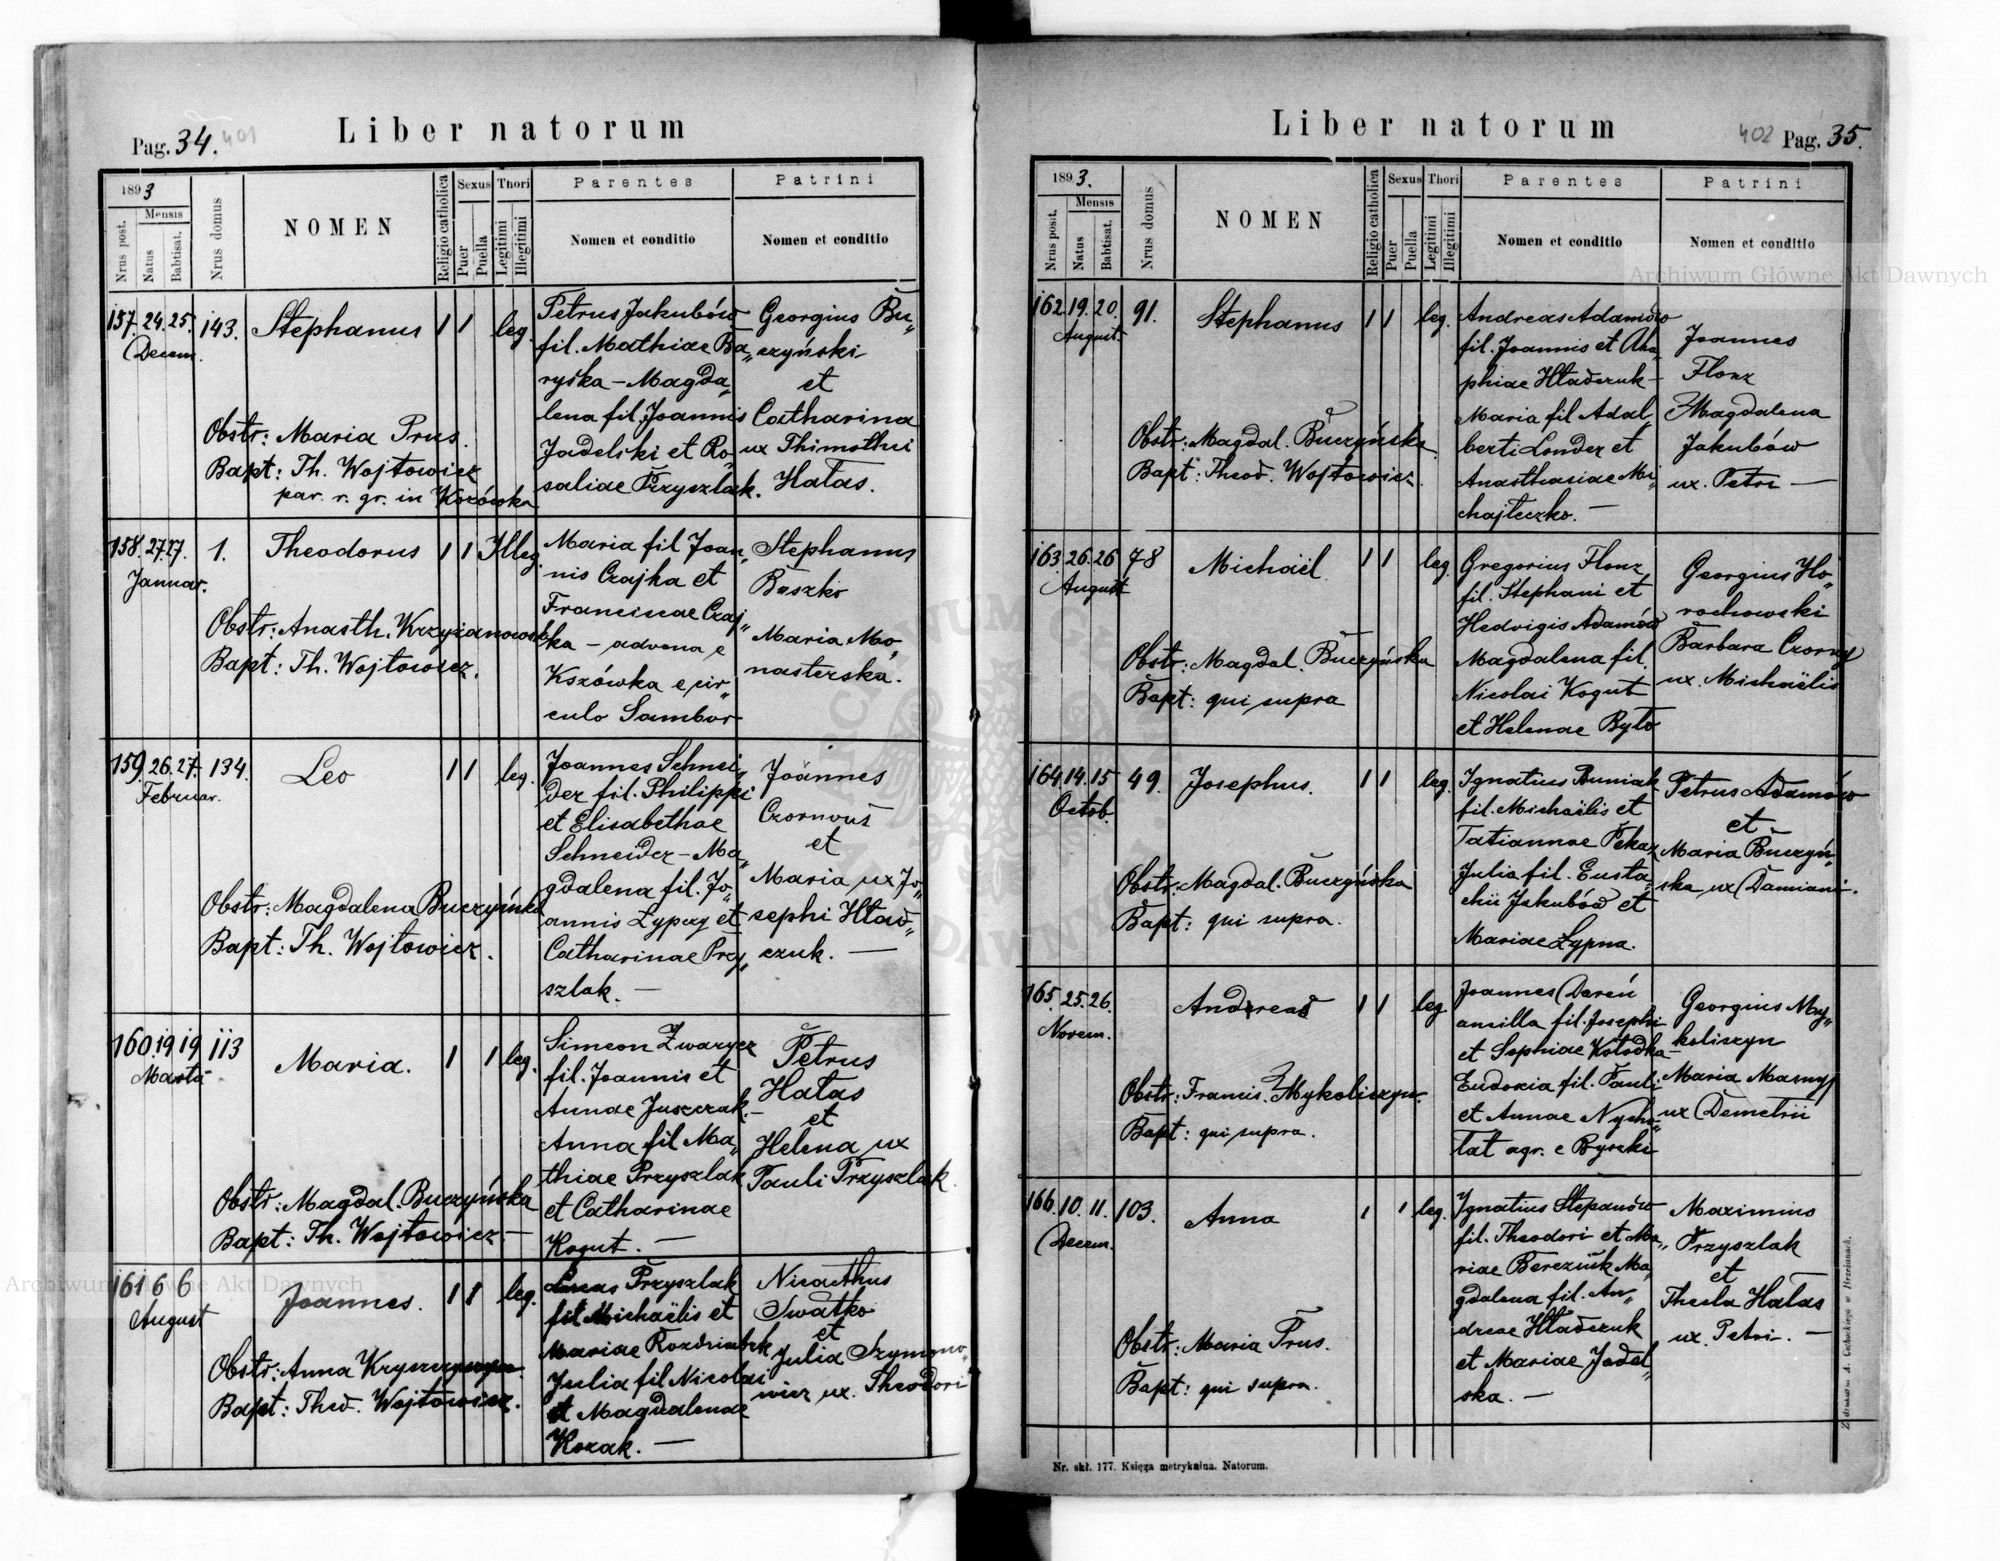 Liber natorum
Pag. 34. 401
1893
Nrus post.
Mensis
Natus
Babtisat.
Nrus domus
NOMEN
Religio catholica
Sexus
Puer
Puella
Thori
Legitimi
Illegitimi
Parentes
Nomen et conditio
Patrini
Nomen et conditio
157. 24. 25. 143. Stephanus 1 1 leg.
Decem.
Obstr: Maria Prus.
Bapt: Th. Wojtowicz
par. r. gr. in Kozówka
Petrus Jakubów
fil. Mathiae Ba„
ryśka – Magda„
lena fil. Joannis
Jadelski et Ro„
saliae Przyszlak.
Georgius Bu„
czyński
et
Catharina
ux Thimothei
Hałas.
158. 27. 27. 1. Theodorus 1 1 Illeg.
Januar.
Obstr: Anasth. Krzyżanowsk
Bapt: Th. Wojtowicz.
Maria fil Joan„
nis Czajka et
Franciscae Czaj„
ka – advena e
Kszówka e cir„
culo Sambor
Stephanus
Baszko
Maria Mo„
nasterska.
159. 26. 27. 134. Leo 1 1 leg.
Februar.
Obstr: Magdalena Buczyńska
Bapt: Th. Wojtowicz.
Joannes Schnei„
der fil. Philippi
et Elisabethae
Schneider – Ma„
gdalena fil. Jo„
annis Łypczy et
Catharinae Prz„
szlak. –
Joannes
Czornous
et
Maria ux Jo„
sephi Hład„
czuk. –
160. 19 19 113 Maria. 1 1 leg.
Obstr: Magdal. Buczyńska
Bapt: Th. Wojtowicz –
Simeon Zwarycz
fil. Joannis et
Annae Juszczak –
Anna fil Ma„
thiae Przyszlak
et Catharinae
Kogut. –
Petrus
Hałas
et
Helena ux
Pauli Przyszlak.
161 6 6 Joannes. 1 1 leg.
August
Obstr: Anna
Bapt: Theod. Wojtowicz.
Lucas Przyszlak
fil Michaëlis et
Mariae
Julia fil Nicolai
et Magdalenae
Kozak. –
Nicethus
Swatko
et
Julia Szymono„
wicz ux. Theodori
Liber natorum
402 Pag. 35.
1893.
Nrus posit.
Mensis
Natus
Babtisat.
Nrus domus
NOMEN
Religio catholica
Sexus
Puer
Puella
Thori
Legitimi
Illegitimi
Parentes
Nomen et conditio
Patrini
Nomen et conditio
162. 19. 20. 91. Stephanus 1 1 leg.
August.
Obstr: Magdal. Buczyńska
Bapt: Theod. Wojtowicz.
Andreas Adamów
fil. Joannis et Aha„
phiae Hładczuk –
Maria fil Adal„
berti Londer et
Anasthasiae Mi„
chajleczko. –
Joannes
Flonz
Magdalena
Jakubów
ux. Petri –
163. 26. 26 78 Michaël 1 1 leg.
August
Obstr: Magdal. Buczyńska
Bapt: qui supra
Gregorius Flonz
fil. Stephani et
Hedvigis Adamów
Magdalena fil.
Nicolai Kogut
et Helenae Było
Georgius Ho„
rochowski
Barbara Czorny
ux. Michaëlis
164. 14. 15 49. Josephus. 1 1 leg.
Octob.
Obstr: Magdal. Buczyńska
Bapt: qui supra.
Ignatius Buniak
fil. Michaëlis et
Tatiannae Pekaz
Julia fil. Eusta„
chii Jakubów et
Mariae Łypna.
Petrus Adamów
et
Maria Buczyń„
ska ux Damiani.
165. 25. 26. Andreas 1 1 leg
Novem.
Obstr: Francis. Mykoliszyn.
Bapt: qui supra.
Joannes Dereń
ancilla fil. Josephi
et Sophiae Kołodka –
Eudoxia fil. Pauli
et Annae Nycho„
łat agr. e Byszki
Georgius My„
koliszyn
Maria Masny
ux Demetrii
166. 10. 11. 103. Anna 1 1 leg.
Decem.
Obstr: Maria Prus.
Bapt: qui supra.
Ignatius Stepanów
fil. Theodori et Ma„
riae Bereziuk Ma„
gdalena fil. An„
dreae Hładczuk
et Mariae Jadel„
ska. –
Maximus
Przyszlak
et
Thecla Hałas
ux. Petri. –
Nr. skł. 177. Księga metrykalna. Natorum.
Archiwum Główne Akt Dawnych
Archiwum Główne Akt Dawnych